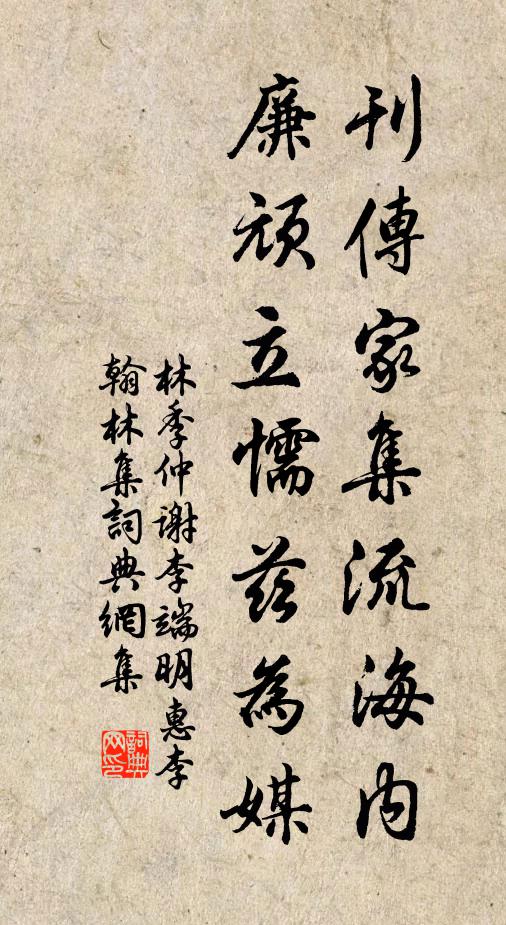 刊傳家集流海内
廉頑立懦茲為媒
林季仲謝李端明惠李
翰林集詞典網集
詞典
网印